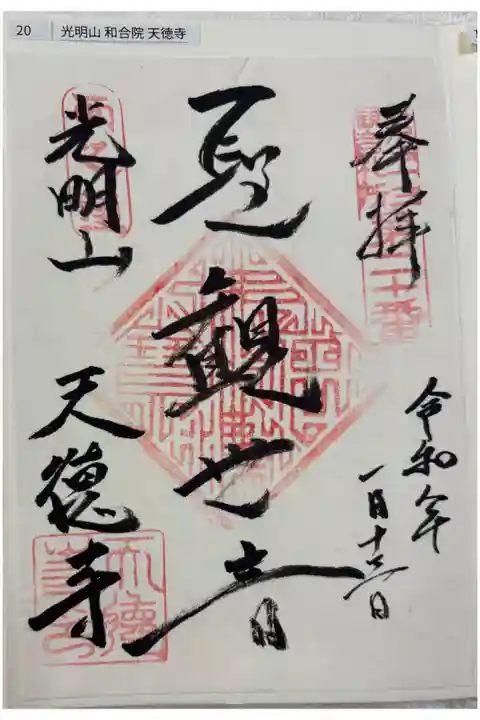 20 光明山 和合院 天徳寺
奉拝
令和六年
一月十六日
聖観世音
光明山
天徳寺